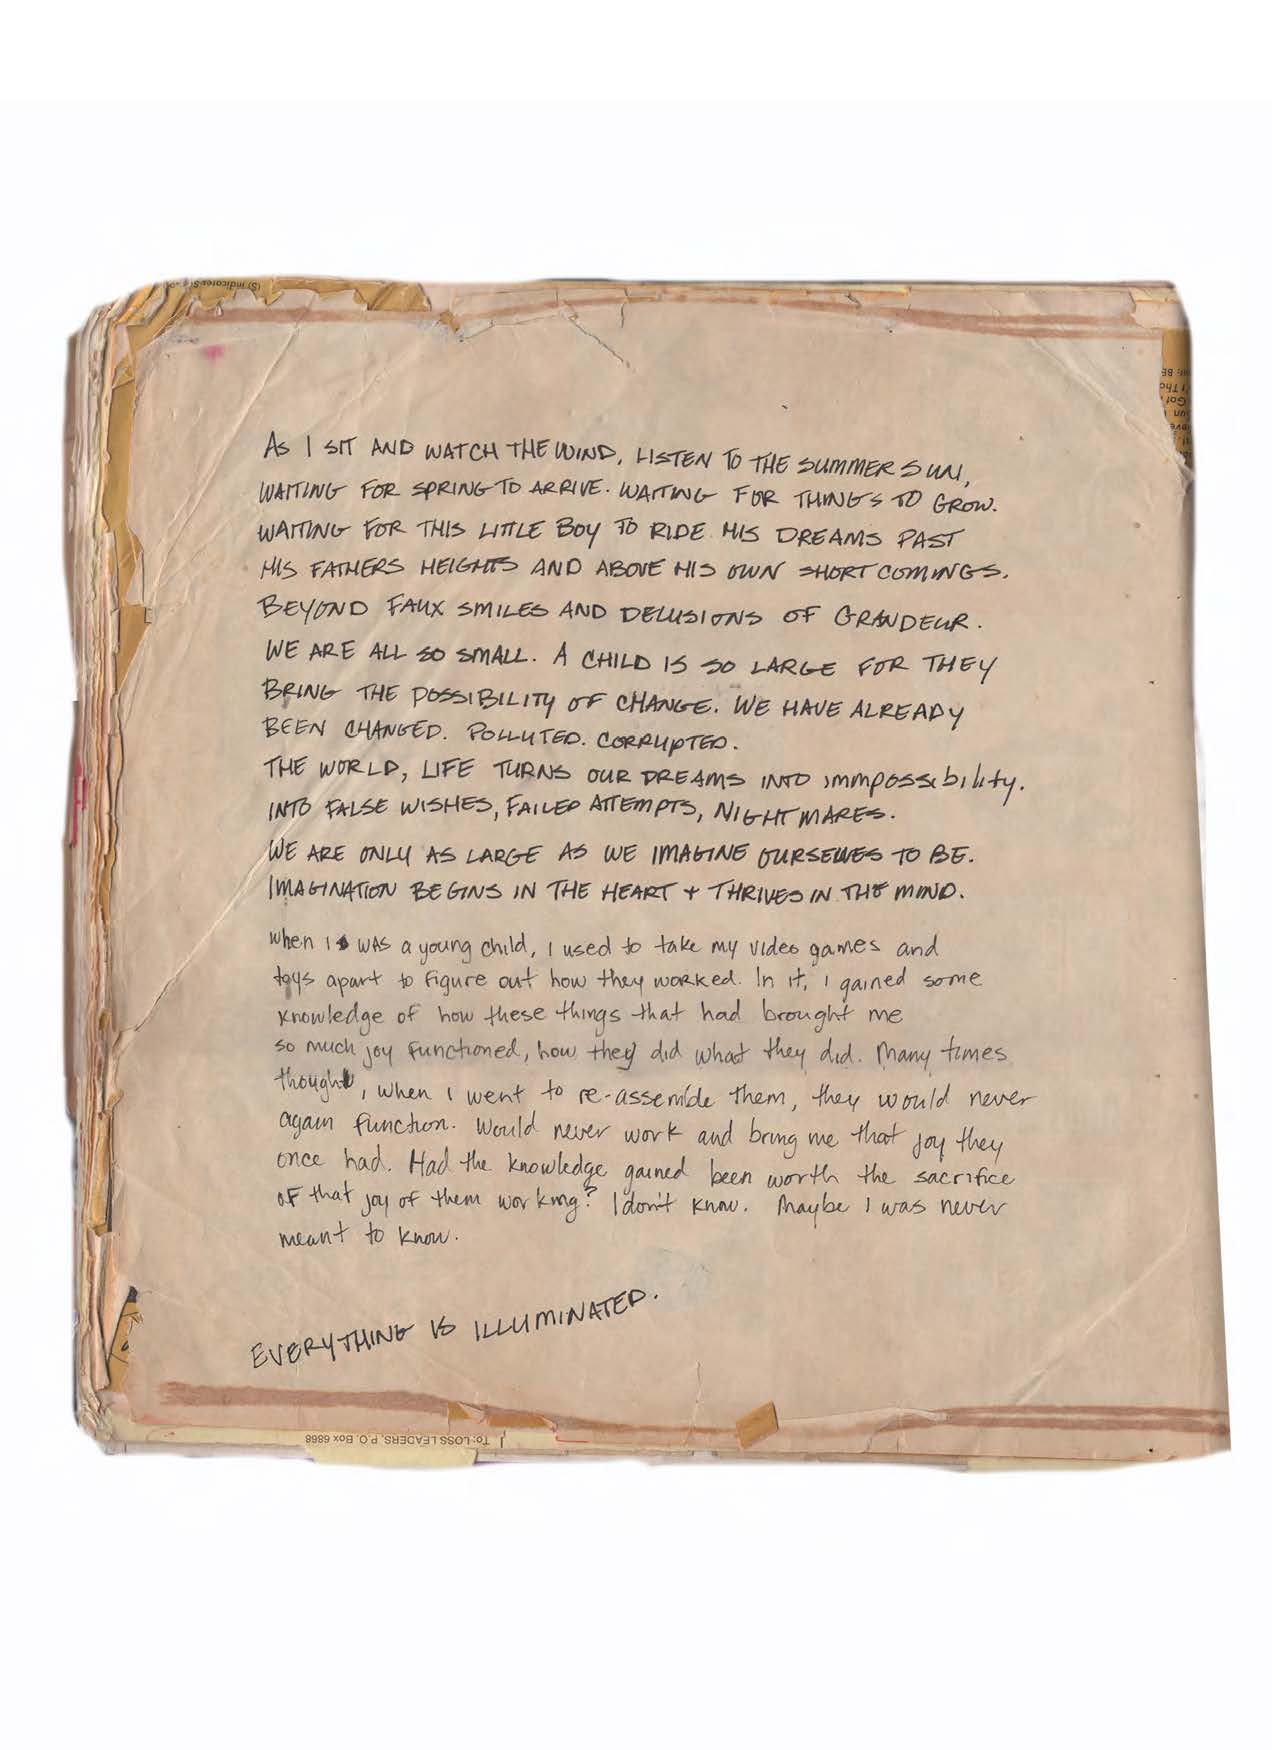 (S) Indicates S
AS I SIT AND WATCH THE WIND, LISTEN TO THE SUMMER SUN,
WAITING FOR SPRING TO ARRIVE. WAITING FOR THINGS TO GROW.
WAITING FOR THIS LITTLE BOY TO RIDE HIS DREAMS PAST
HIS FATHERS HEIGHTS AND ABOVE HIS OWN SHORT COMINGS.
BEYOND FAUX SMILES AND DELUSIONS OF GRANDEUR.
WE ARE ALL SO SMALL. A CHILD IS SO LARGE FOR THEY
BRING THE POSSIBILITY OF CHANGE. WE HAVE ALREADY
BEEN CHANGED. POLLUTED. CORRUPTED.
THE WORLD, LIFE TURNS OUR DREAMS INTO immpossibility.
INTO FALSE WISHES, FAILED ATTEMPTS, NIGHTMARES.
WE ARE ONLY AS LARGE AS WE IMAGINE OURSELVES TO BE.
IMAGINATION BEGINS IN THE HEART + THRIVES IN THE MIND.
When I was a young child, I used to take my video games and
toys apart to figure out how they worked. In it, I gained some
knowledge of how these things that had brought me
so much joy functioned, how they did what they did. Many times
though, when I went to re-assemble them, they would never
again function. Would never work and bring me that joy they
once had. Had the knowledge gained been worth the sacrifice
of that joy of them working? I don't know. Maybe I was never
meant to know.
EVERYTHING IS ILLUMINATED.
To: LOSS LEADERS, P.O. Box 6868